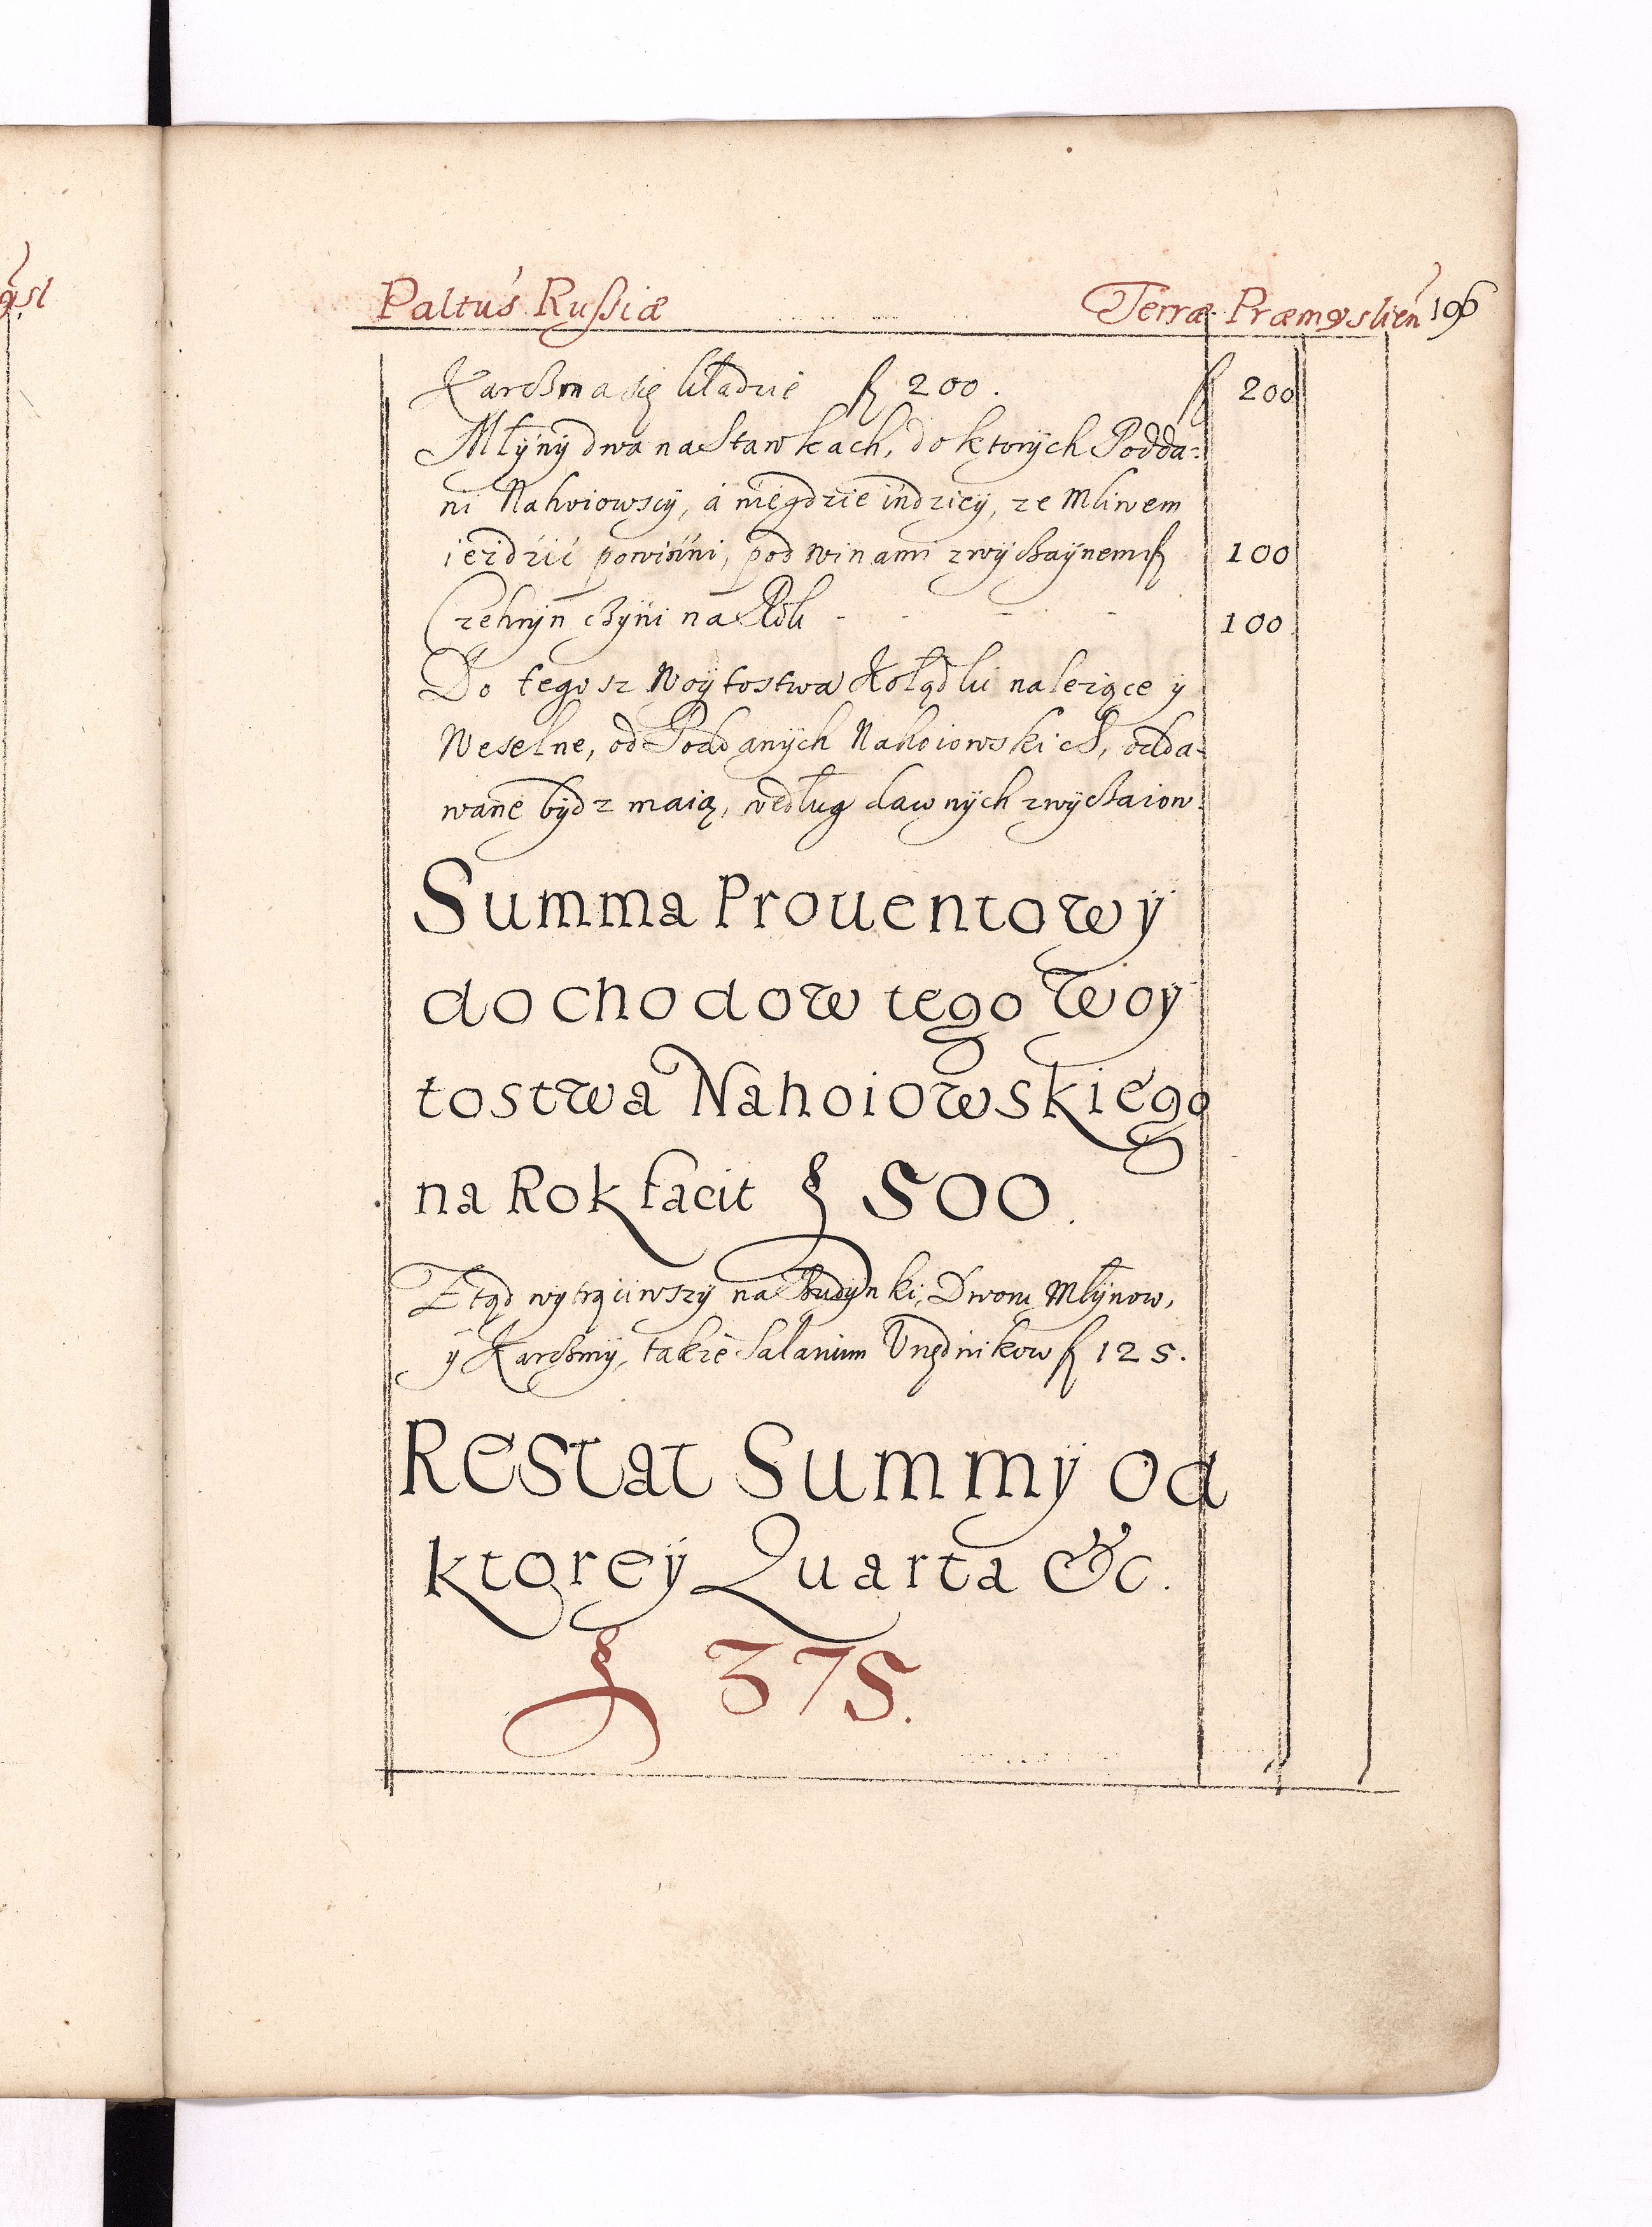 ysl
Paltus Russiæ Terræ Præmyslien 196
Karczma się kładzie f 200. f 200
Młÿnÿ dwa na Stawkach, do ktorÿch Podda-
ni Nahoiowscÿ, á niegdzie indzieÿ, ze Mliwem
ieżdżić powinni, pod winami zwÿczaÿnemi f 100
na Roli - - - 100
Do tego sz Woÿtostwa Kolędki należące ÿ
Weselne, od Poddanÿch Nahoiowskich, odda-
wane bÿdz maią, według dawnÿch zwÿczaiow.
Summa Prouentow ÿ
dochodow tego Woÿ
tostwa Nahoiowskiego
na Rok facit f 500.
Ztąd wytrąciwszÿ na Budÿnki, Dworu Młÿnow,
ÿ Karczmÿ, także Salarium Urzędnikow f 125.
Restat Summÿ od
ktoreÿ Quarta &c.
f 375.